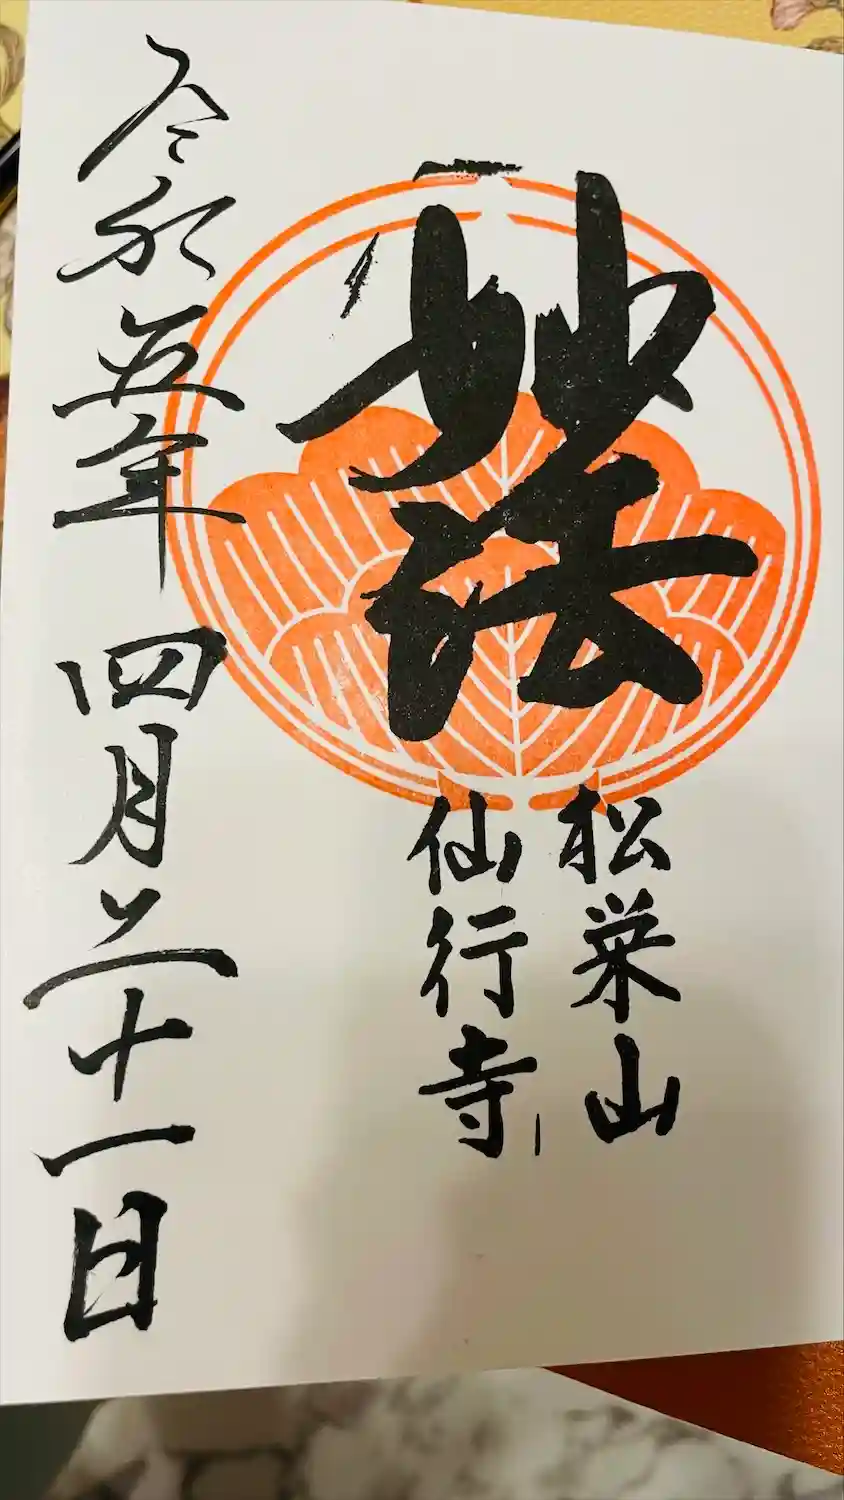 妙法
松栄山
仙行寺
令和五年四月二十一日